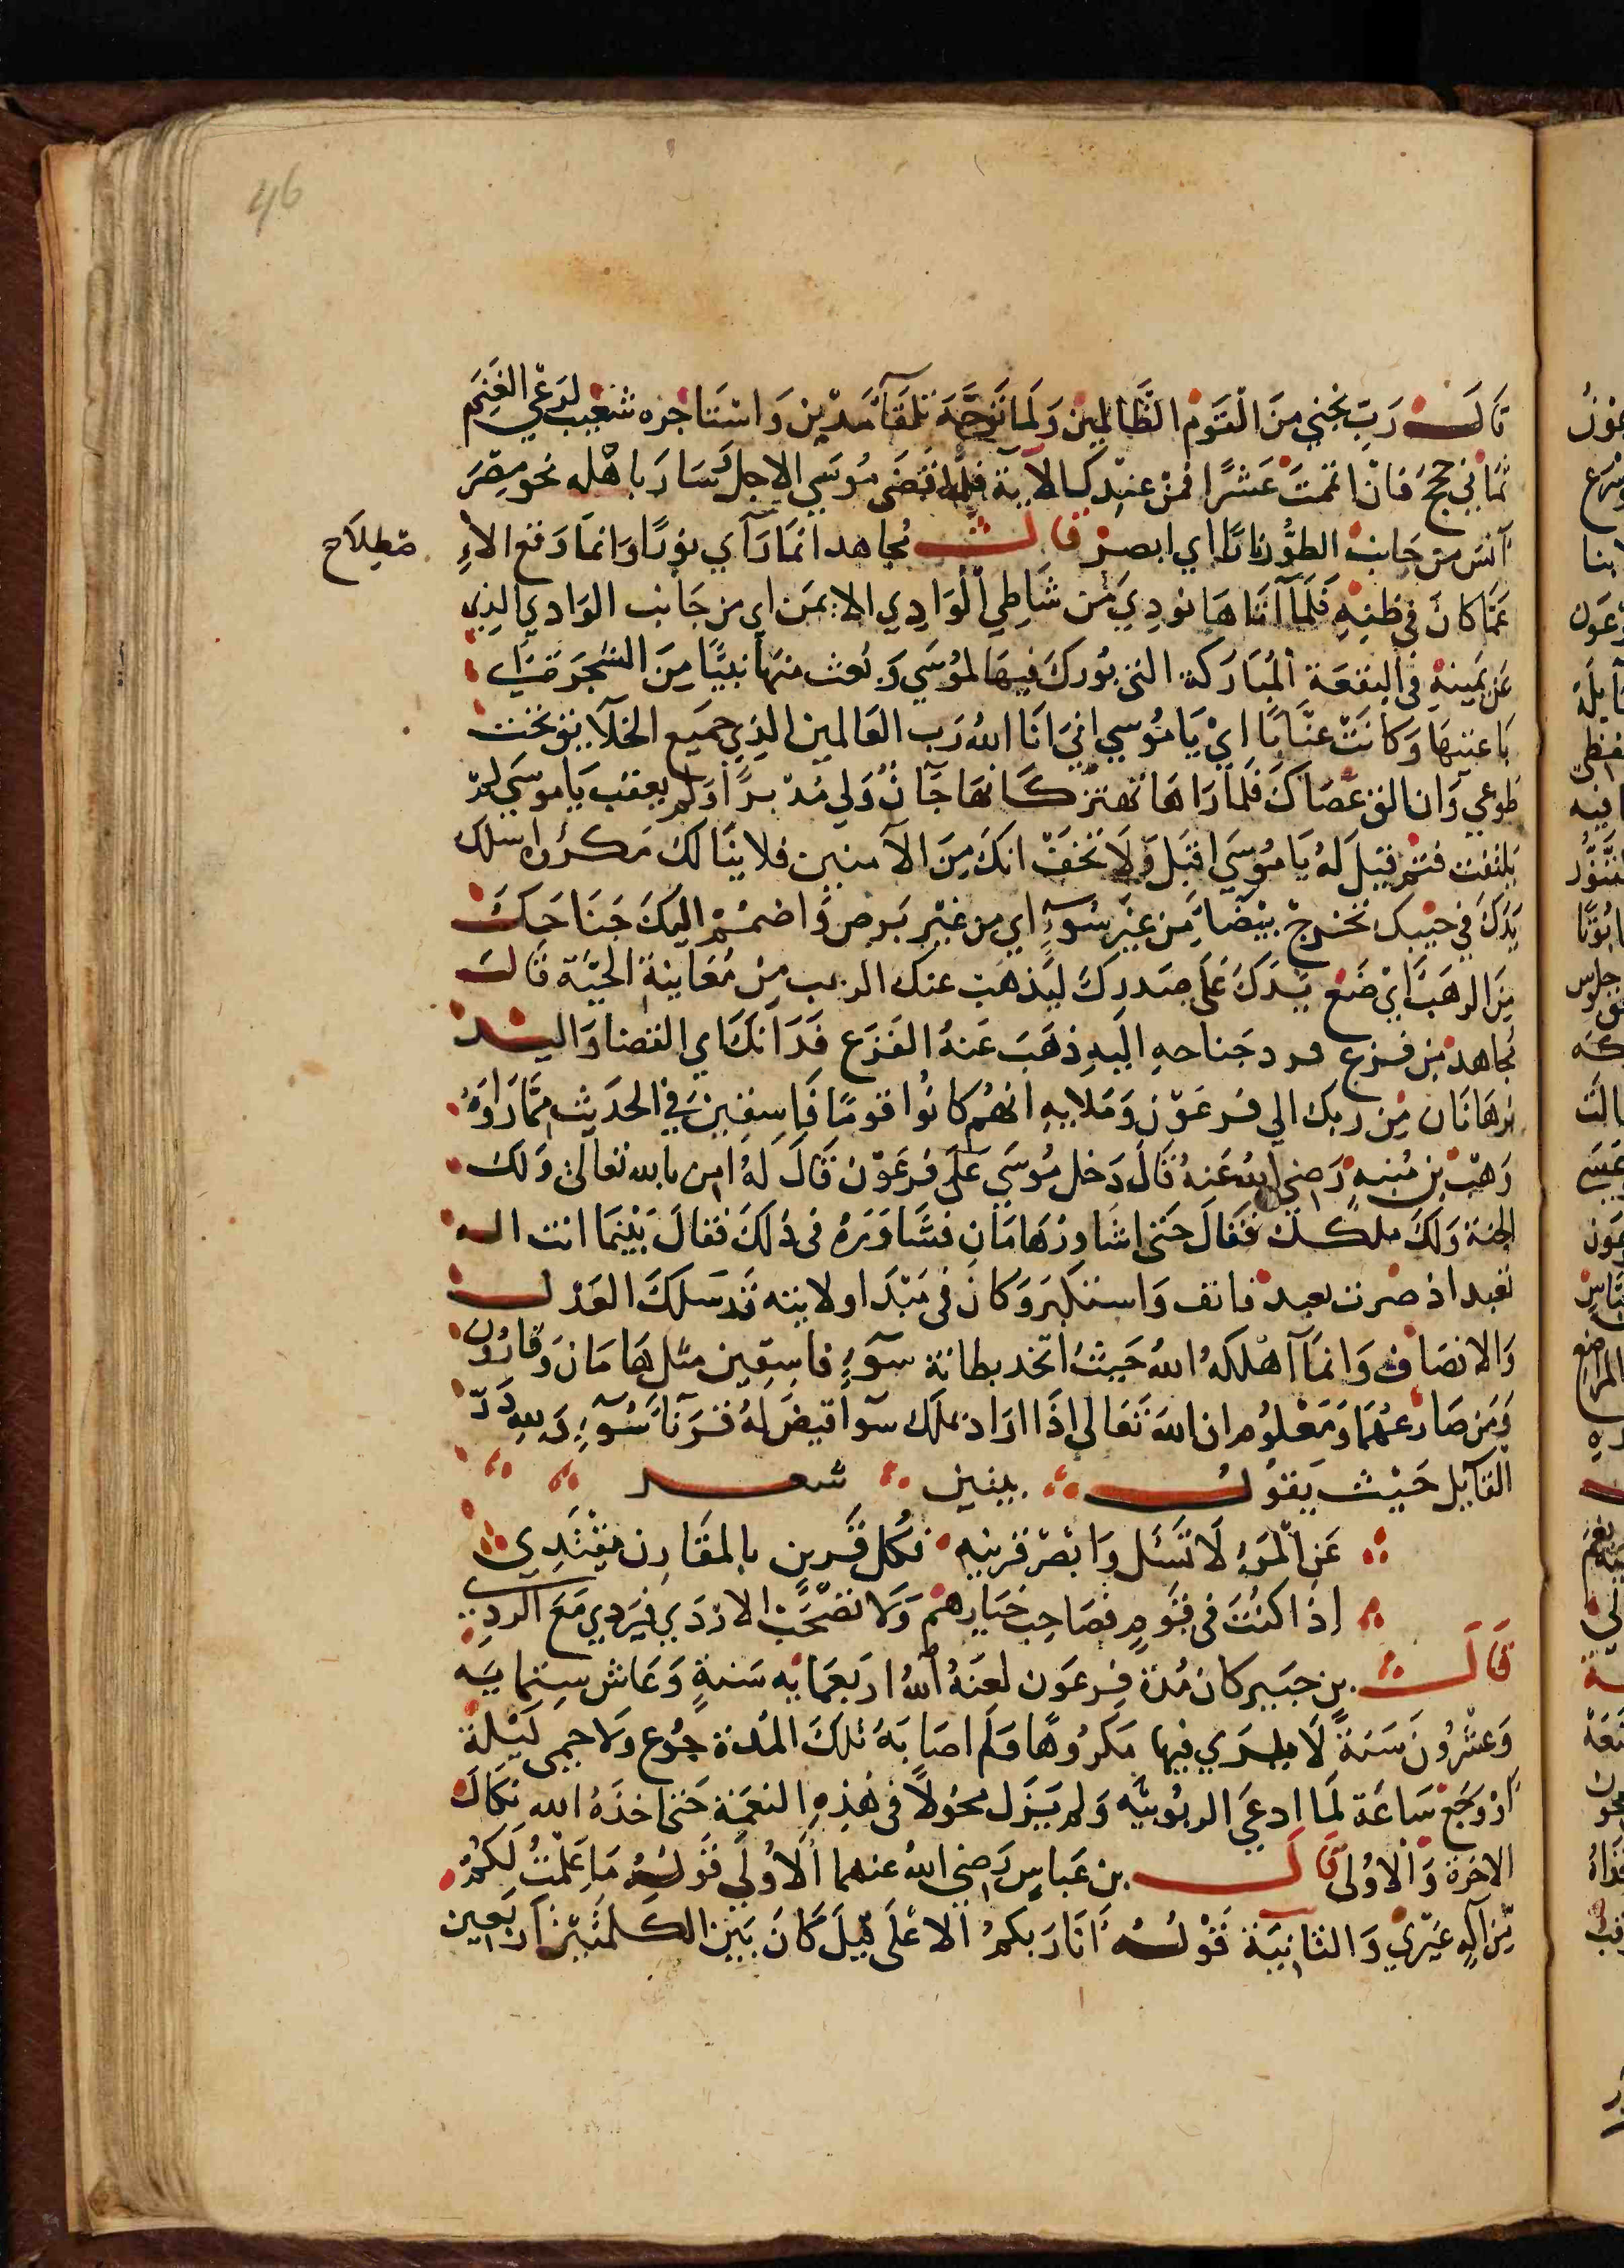 46
قَالَ رَبِّ نجني مِنَ الْقَوم الظَّالِمين وَلَما تَوَجَّهَ تلقَآ مَدْيَن وَاسْتَاجره شعَيب لرَعْي الغَنَم
ثمَاني حججٍ فان اتممتَ عَشرًا فمن عِنْدِك الآية فلما قضَى مُوسَي الاجلَ سَارَ باهْله نحو مِصْرَ
آنسَ من جَانب الطور نارًا اي ابصر قال مجاهد انمَا رَآي نورًا وَانمَا وَقع الا
صطِلاح
عَمَّا كانَ في ظنهِ فَلَمَآ اتَاهَا نودِيَ مِن شَاطِي الْوَادِي الايمَن اي من جَانب الوَادي الذِي
عَن يَمينهِ في البقعَة المُبَارَكة التي بُورِكَ فيهَا لمُوسَي وَبُعث منهَا نبيًّا مِنَ الشجَرَة مِن
نَاحِيتهَا وَكَانَتْ عنَّابًا ايْ يَا مُوسي اني انَا اللهُ رَب العَالمين الذِي جميَع الخلَايق تحْت
طوعي وَان الق عَصَاكَ فَلَمَا رَاهَا تَهتز كَانهَا جَآنٌ وَلي مُدْبرًا وَلم يعقبْ يَا موسَي لمْ
يَلتفت فَثم قيلَ لهُ يَا مُوسَي اقبَل وَلَا تَخَفْ انكَ مِنَ الآمنين فلا ينَالكَ مَكرُوه اسْلك
يَدَكَ في جَيْبك تخرج بيْضَا مِن غير سُوءٍ اي من غيْر بَرص وَاضمُمْ اليكَ جَنَاحَكَ
مِنَ الرهَب اي ضَعْ يَدَكَ عَلَى صَدرِكَ ليَذهَبَ عنك الرعب مِنْ مُعَاينة الحيّة قَال
مجاهد من فزع فرد جَناحهِ اليهِ ذهَبَ عَنهُ الفَزَع فَذَانكَ اي العَصَا وَاليد
برْهَانَان مِن رَبك الي فرعَوْن وَمَلايهِ انهُم كانُوا قومًا فَاسِقين في الحدَيث ممَّا رَاوَهُ
وَهْب بن مُنبهٍ رَضي اللهُ عَنهُ قالَ دَخل مُوسَي عَلَى فرعَوْن قَالَ لهُ امن بالله تعَالى وَلكَ
الجنة وَلكَ ملكك فقَالَ حَتى اشَاورُ هَامَان فشَاوَرَهُ في ذلكَ فقالَ بَيْنمَا انت اله
تعبد اذ صرت تعبد فانف وَاستكبرَ وَكانَ في مَبْدَا ولايته قد سَلكَ العَدْل
وَالانصَاف وَانمَا آهْلكهُ اللهُ حَيثُ اتخد بطانة سوءٍ فاسِقين مثل هَامَان وَقارُون
وَمَن ضَارعهُمَا وَمَعْلوُم ان اللهَ تعَالي إذَا ارَادَ بملك سوأ قيضَ لهُ قرَنآ سُوءٍ وَلله دَرّ
القايل حَيْث يَقول بيتين شعر
عَنِ الْمَرءِ لَا تَسْئل وَابْصرْ قرينه فكل قرين بالمقارن مُقتدِي
إذا كنتَ في قَومٍ فصَاحِب خيَارهُم وَلا تصحَب الاردَي فتردي مَعَ الردِي
قَالَ بن جبَير كان مُدَة فرعَون لعنهُ اللهُ اربَعمَايه سَنةٍ وَعَاش ستمايَه
وَعشْرُونَ سَنةً لَا يرَي فيها مَكرُوهًا وَلم اصَابهُ تلكَ المُدة جُوع وَلَا حمى لَيْلة
اوْ وَجَع سَاعَة لَمَا ادعَي الربُوبيَّه وَلم يَزل مخوّلاً في هَذهِ النعَمة حَتى اخذَهُ الله نكالَ
الاخرَة وَالْاوُلى قَالَ بن عَباسٍ رَضي اللهُ عنهما الأوُلي قَولهُ مَا عَلمْتُ لَكمْ
مِّن الهٍ غَيْرِي وَالثَانيَة قَوْلهُ انَا رَبكمُ الاعْلَى قِيلَ كَانَ بَيْن الكلمَتيْن اربَعِين